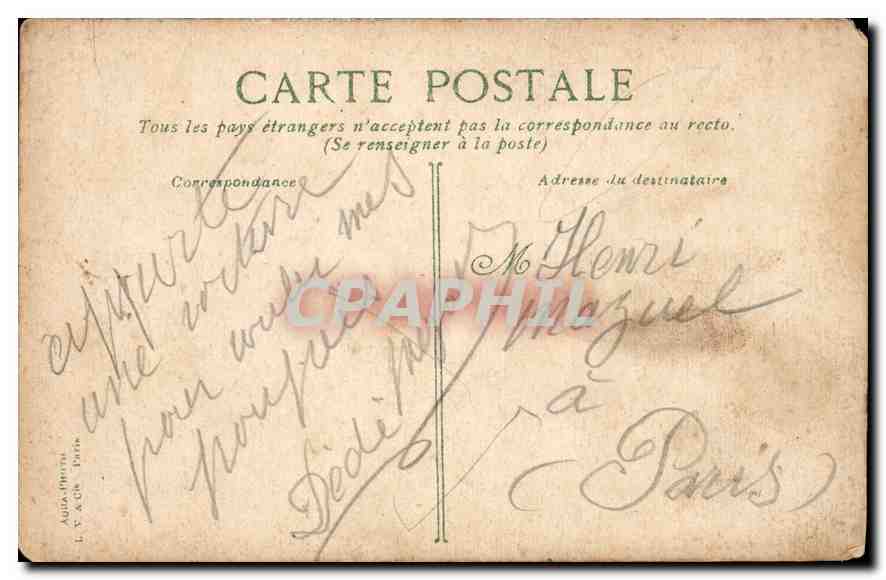 CARTE POSTALE
Tous les pays étrangers n'acceptent pas la correspondance au recto.
(Se renseigner à la poste)
Correspondance
apporte
une
pour mes
poupées
Dédé
Adresse du destinataire
M Henri
Mazuel
à
(Paris)
AQUA-PHOTO
L. V. & Cie Paris
CPAPHIL